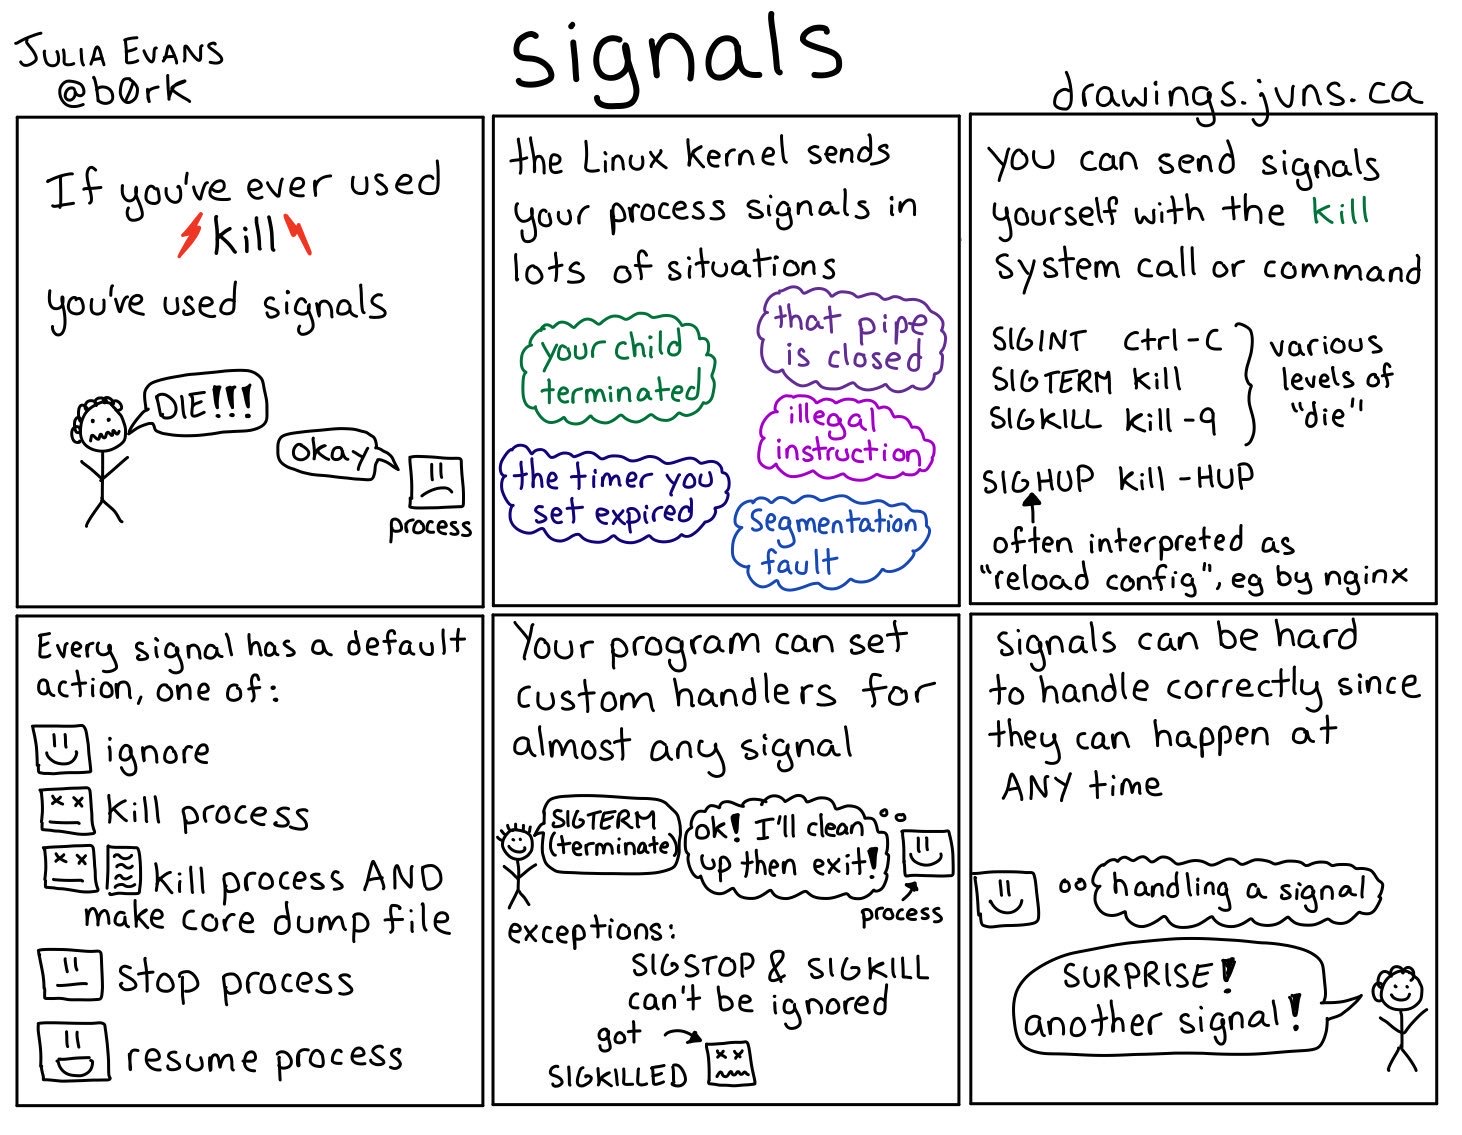 JULIA EVANS
@b0rk
signals
drawings.jvns.ca
If you've ever used
kill
you've used signals
DIE!!!
okay
process
the Linux kernel sends
your process signals in
lots of situations
your child
terminated
that pipe
is closed
illegal
instruction
the timer you
set expired
segmentation
fault
you can send signals
yourself with the kill
system call or command
SIGINT ctrl-C
SIGTERM kill
SIGKILL kill -9
various
levels of
"die"
SIGHUP kill -HUP
often interpreted as
"reload config", eg by nginx
Every signal has a default
action, one of:
ignore
kill process
kill process AND
make core dump file
stop process
resume process
Your program can set
custom handlers for
almost any signal
SIGTERM
(terminate)
ok! I'll clean
up then exit!
process
exceptions:
SIGSTOP & SIGKILL
can't be ignored
got
SIGKILLED
signals can be hard
to handle correctly since
they can happen at
ANY time
handling a signal
SURPRISE!
another signal!